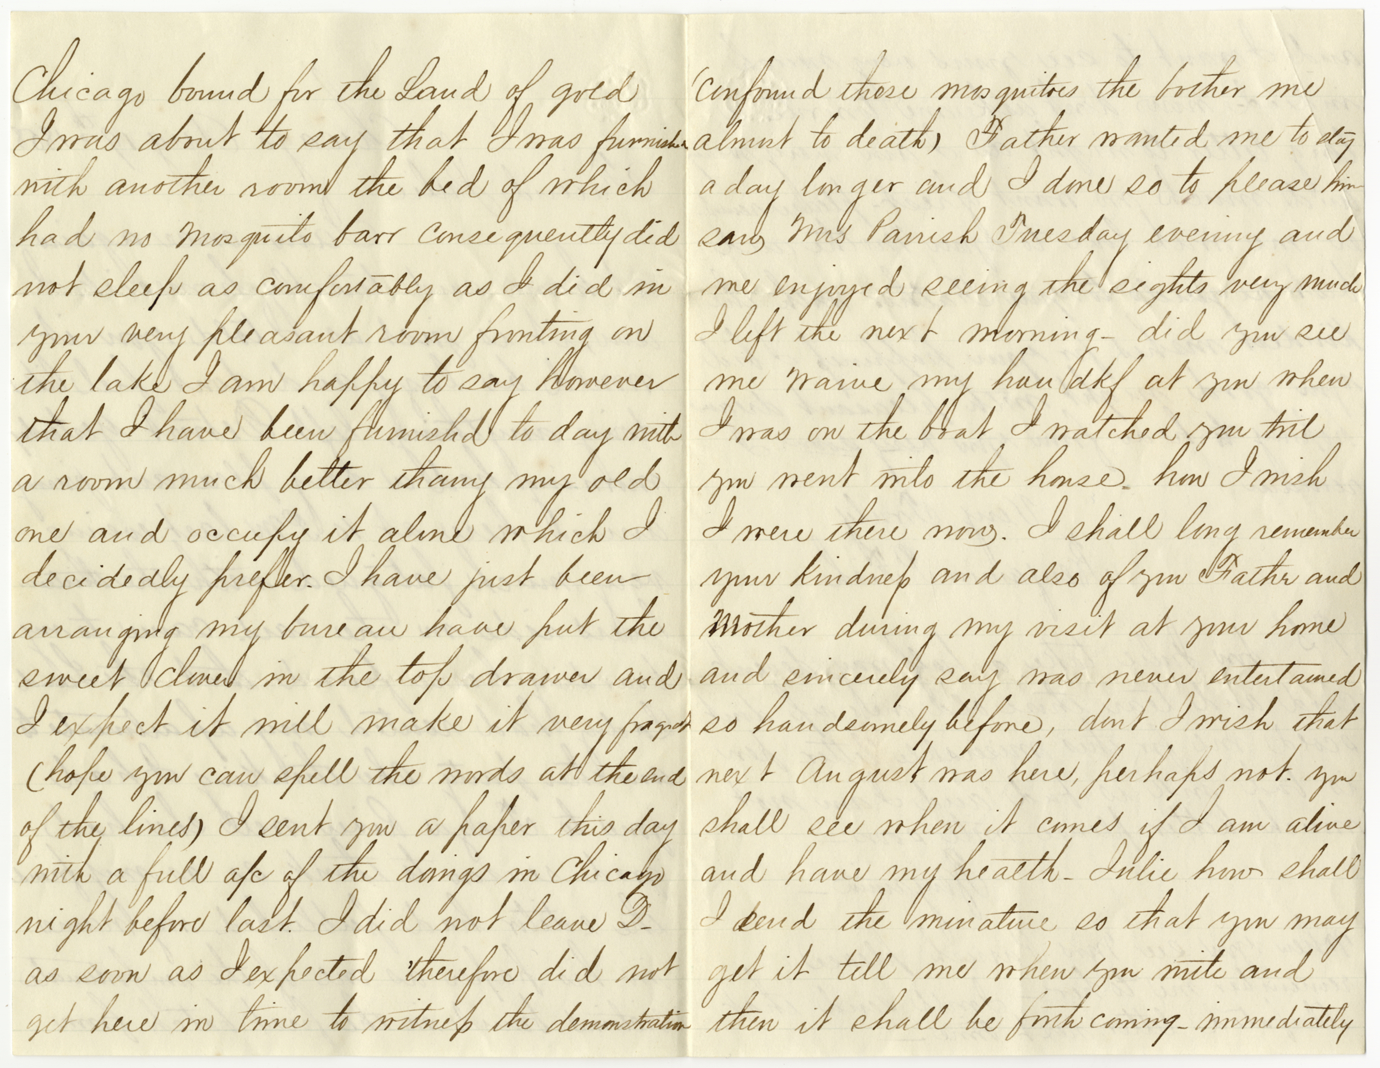 Chicago bound for the Land of gold
I was about to say that I was furnished
with another room the bed of which
had no Mosquito barr consequently did
not sleep as comfortably as I did in
your very pleasant room fronting on
the lake I am happy to say however
that I have been furnishd to day with
a room much better thany my old
one and occupy it alone which I
decidedly prefer. I have just been
arranging my bureau have put the
sweet clover in the top drawer and
I expect it will make it very fragrant
(hope you can spell the words at the end
of the lines) I sent you a paper this day
with a full a/c of the doings in Chicago
night before last. I did not leave D-
as soon as I expected therefore did not
get here in time to witness the demonstration
(confound those mosquitoes the bother me
almost to death) Father wanted me to stay
a day longer and I done so to please him
saw Mrs Parrish Tuesday evening and
we enjoyed seeing the sights very much
I left the next morning - did you see
me waive my handkf at you when
I was on the boat I watched you till
you went into the house - how I wish
I were there now. I shall long remember
your kindness and also of you Father and
Mother during my visit at your home
and sincerely say was never entertained
so handsomely before, dont I wish that
next August was here, perhaps not. you
shall see when it comes if I am alive
and have my health - Julie how shall
I send the minature so that you may
get it tell me when you write and
then it shall be forth coming - immediately